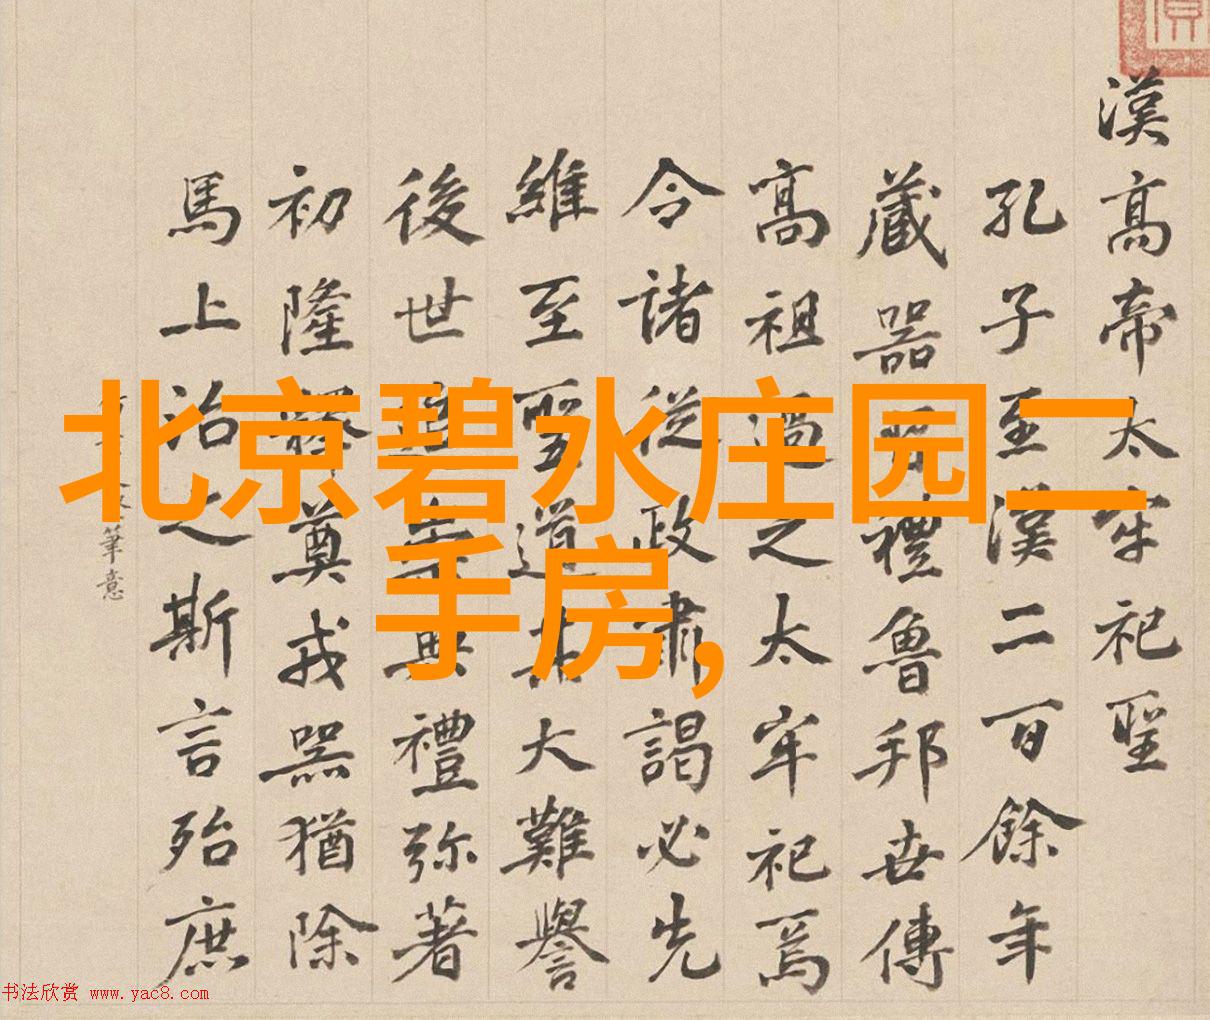 漢高帝太牢祀聖
孔子至漢二百餘年
藏器禮魯邦世傳
高祖過之太牢祀焉
令諸從政肅謁必先
維至聖道大難譽
後世典禮弥著
初隆釋奠戎器猶除
馬上治之斯言殆庶
筆意
北京碧水庄园二
手房,
书法欣赏 www.yac8.com